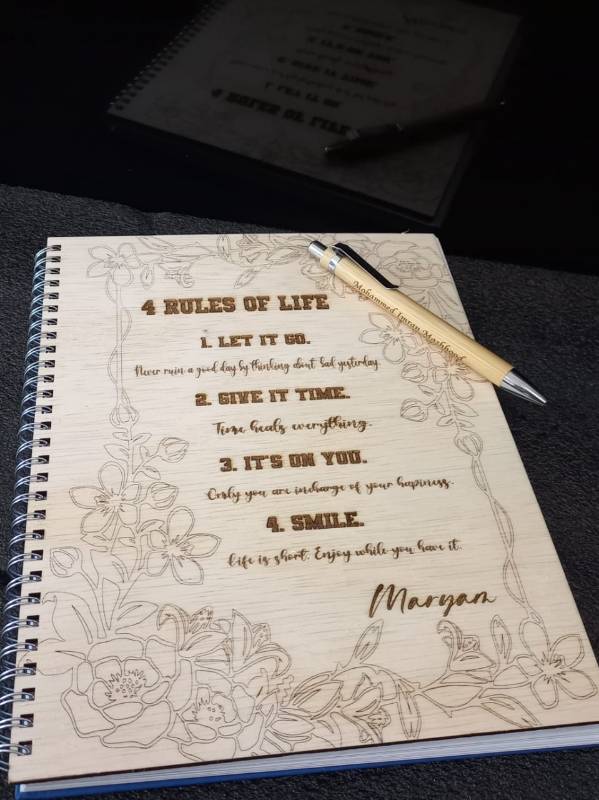 4 RULES OF LIFE
1. LET IT GO.
Never ruin a good day by thinking about bad yesterday
2. GIVE IT TIME.
Time heals everything.
3. IT'S ON YOU.
Only you are incharge of your hapiness.
4. SMILE.
life is short. Enjoy while you have it.
Maryam
Mohammed Imran Mashhood